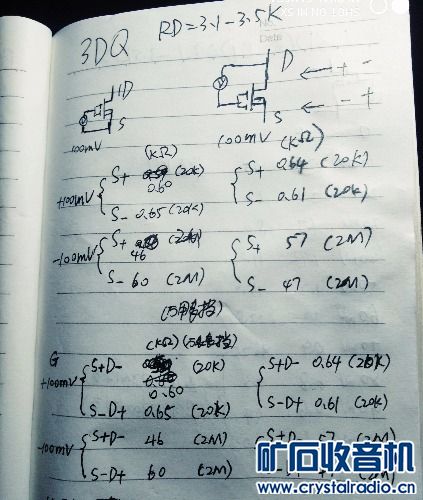 3DQ RD=3.1-3.5K
D D + -
S S - +
100mV 100mV
(KΩ) (KΩ)
+100mV S+ 0.60 (20K) S+ 0.64 (20K)
S- 0.65 (20K) S- 0.61 (20K)
-100mV S+ 46 (2M) S+ 57 (2M)
S- 60 (2M) S- 47 (2M)
(KΩ)
G
+100mV S+D- 0.60 (20K) S+D- 0.64 (20K)
S-D+ 0.65 (20K) S-D+ 0.61 (20K)
-100mV S+D- 46 (2M) S+D- 57 (2M)
S-D+ 60 (2M)
矿石收音机
www.crystalradio.cn